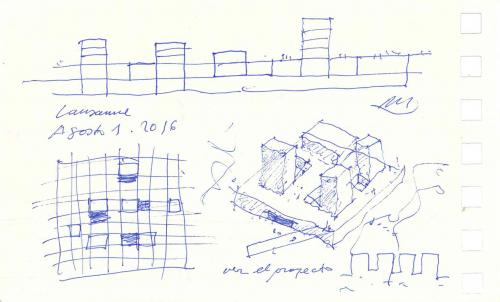 Lausanne
Agosto 1. 2016
ver el proyecto